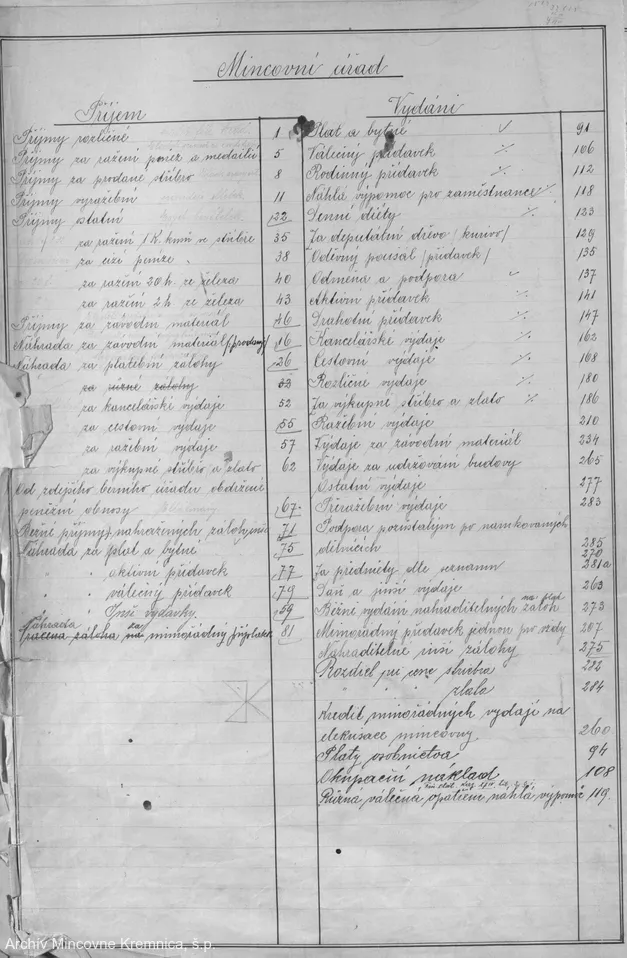 Mincovní úřad
Příjem
Příjmy rozličné 1
Příjmy za ražení peněz a medailií 5
Příjmy za prodané stříbro 8
Příjmy vyražební 11
Příjmy ostatní 22
za ražení 1 K. kusů ve stříbře 35
za cizé peníze „ 38
za ražení 20 h. ze železa 40
za ražení 2 h. ze železa 43
Příjmy za závodní materiál 46
Náhrada za závodní materiál /prodaný/ 16
Náhrada za platební zálohy 26
za různé zálohy 33
za kancelářské výdaje 52
za cestovní výdaje 55
za ražební výdaje 57
za výkupné stříbro a zlato 62
Od zdejšího berního úřadu obdržené
peněžní obnosy 67
Běžné příjmy nahražených záloh 71
Náhrada za plat a bytné 75
„ „ aktivní přídavek 77
„ „ válečný přídavek 79
„ „ Jiné výdavky 59
Náhrada za
Vrácená záloha na mimořádný příplatek 81
Vydání
Plat a bytné √ 91
Válečný přídavek ⁒ 106
Rodinný přídavek ⁒ 112
Náhlá výpomoc pro zaměstnance ⁒ 118
Denní diéty ⁒ 123
Za deputátní dřevo /krivo/ 129
Oděvný pousál /přídavek/ 135
Odměna a podpora √ 137
Aktivní přídavek 141
Drahotní přídavek ⁒ 147
Kancelářské výdaje ⁒ 162
Cestovní výdaje ⁒ 168
Rozličné výdaje ⁒ 180
Za výkupné stříbro a zlato ⁒ 186
Ražební výdaje 210
Výdaje za závodní materiál 234
Výdaje za udržování budovy 265
Ostatní výdaje 277
Přeražební výdaje 283
Podpora pozůstalým po
dělnících 285
270
Za předměty dle seznamu 281a
Daň a jiné výdaje 263
Běžné vydání nahraditelných záloh 273
Mimořádný přídavek jednou pro vždy 287
Nahraditelné jiné zálohy 275
Rozdiel pri cene striebra 282
„ „ „ zlata 284
Kredit mimořádných vydají na
elektrisace mincovny 260
Platy osobnictva 94
Okupační náklad 108
Různá válečná opatření náhlá výpomoc 119.
Archív Mincovne Kremnica, š.p.